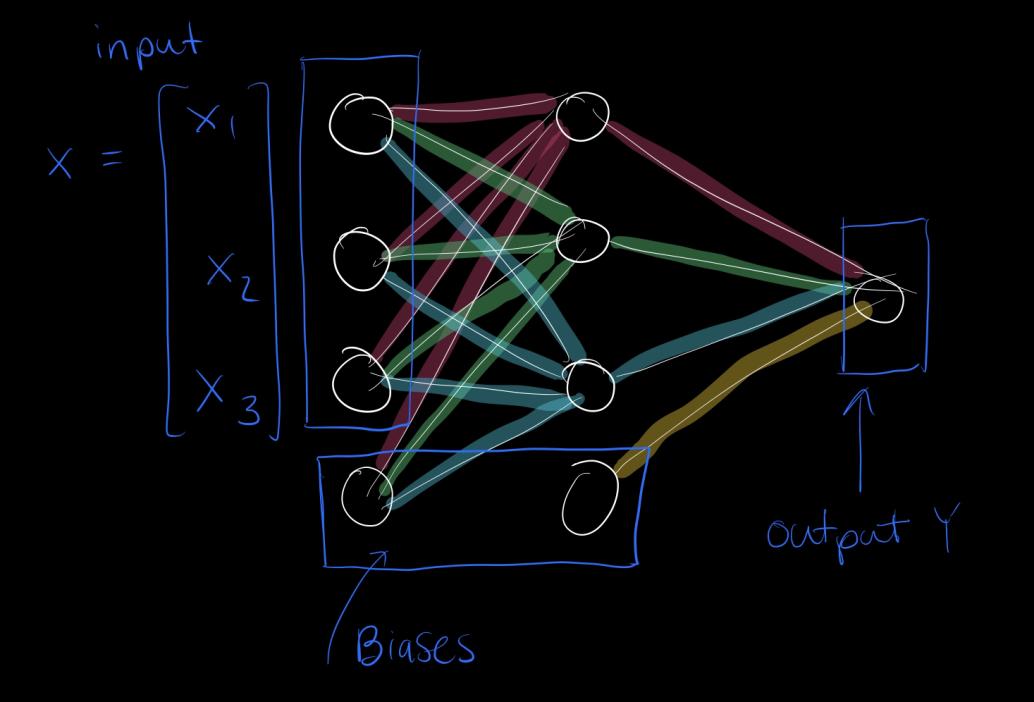 input
x =
x1
x2
x3
output Y
Biases